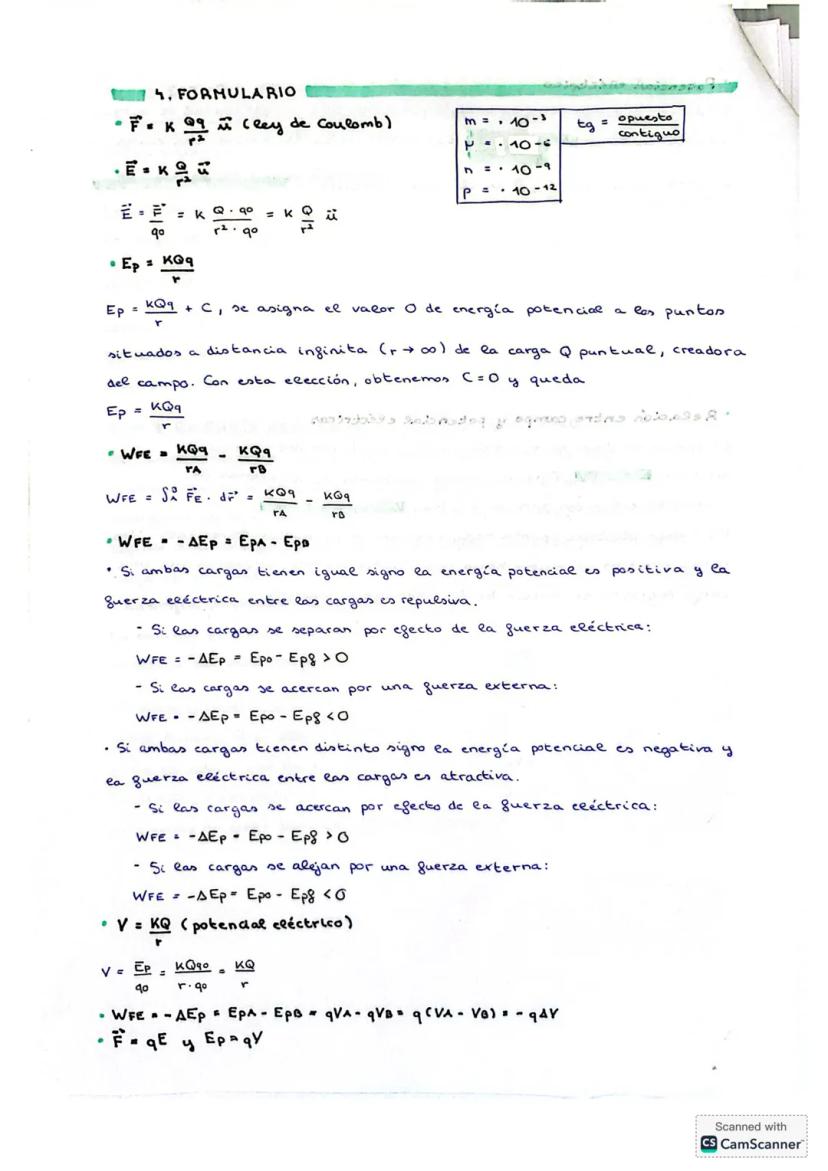 4. FORMULARIO
• F⃗ = K Qq/r² u⃗ (ley de Coulomb)
m = · 10⁻³
μ = · 10⁻⁶
n = · 10⁻⁹
p = · 10⁻¹²
tg = opuesto/contiguo
• E⃗ = K Q/r² u⃗
E⃗ = F⃗/q0 = K Q · q0/r² · q0 = K Q/r² u⃗
• Ep = KQq/r
Ep = KQq/r + C, se asigna el valor 0 de energía potencial a los puntos
situados a distancia infinita (r → ∞) de la carga Q puntual, creadora
del campo. Con esta elección, obtenemos C = 0 y queda
Ep = KQq/r
• WFE = KQq/rA - KQq/rB
WFE = ∫ᴬᴮ F⃗E · dr⃗ = KQq/rA - KQq/rB
• WFE = - ΔEp = EpA - EpB
• Si ambas cargas tienen igual signo la energía potencial es positiva y la
fuerza eléctrica entre las cargas es repulsiva.
- Si las cargas se separan por efecto de la fuerza eléctrica:
WFE = -ΔEp = Epo - Epf > 0
- Si las cargas se acercan por una fuerza externa:
WFE = -ΔEp = Epo - Epf < 0
• Si ambas cargas tienen distinto signo la energía potencial es negativa y
la fuerza eléctrica entre las cargas es atractiva.
- Si las cargas se acercan por efecto de la fuerza eléctrica:
WFE = -ΔEp = Epo - Epf > 0
- Si las cargas se alejan por una fuerza externa:
WFE = -ΔEp = Epo - Epf < 0
• V = KQ/r (potencial eléctrico)
V = Ep/q0 = KQq0/r · q0 = KQ/r
• WFE = - ΔEp = EpA - EpB = qVA - qVB = q(VA - VB) = - qΔV
• F⃗ = qE y Ep = qV
Scanned with
CS CamScanner